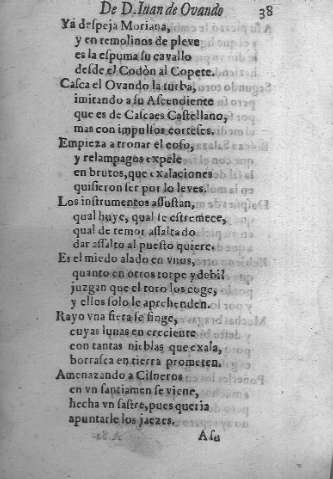 De D. Iuan de Ovando 38
Ya despeja Moriana,
y en remolinos de pleve
es la espuma su cavallo
desde el Codòn al Copete.
Casca el Ovando la turba,
imitando a su Ascendiente
que es de Cascaes Castellano,
mas con impulsos corteses.
Empieza a tronar el coso,
y relampagos expele
en brutos, que exalaciones
quisieron ser por lo leves.
Los instrumentos assustan,
qual huye, qual se estremece,
qual de temor assaltado
dar assalto al puesto quiere.
Es el miedo alado en vnos,
quanto en otros torpe y debil
juzgan que el toro los coge,
y ellos solo le aprehenden.
Rayo vna fiera se finge,
cuyas lunas en creciente
con tantas nieblas que exala,
borrasca en tierra prometen.
Amenazando a Cisneros
en vn santiamen se viene,
hecha vn sastre, pues queria
apuntarle los jaezes.
A su